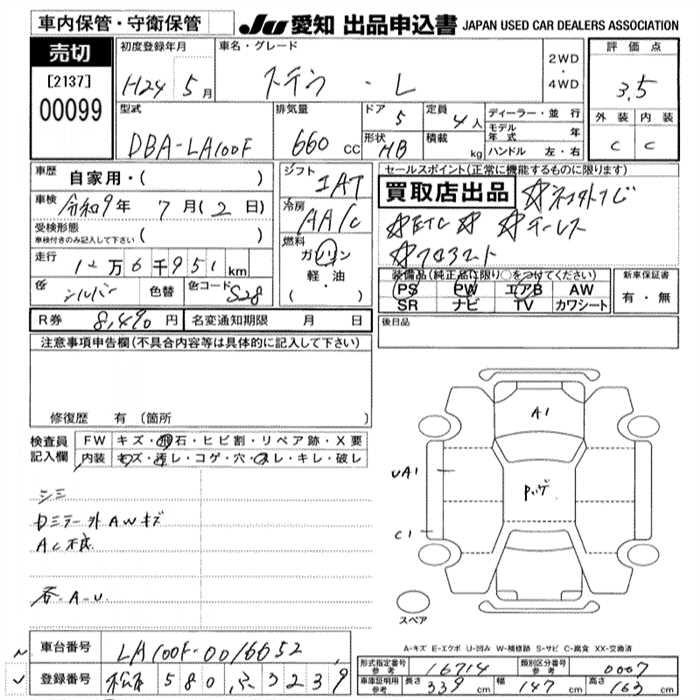 車内保管・守衛保管
JU 愛知 出品申込書 JAPAN USED CAR DEALERS ASSOCIATION
売切
[2137]
00099
初度登録年月
H24 5月
車名・グレード
ステラ ・ L
2WD
・
4WD
評価点
3.5
外装 内装
C C
型式
DBA-LA100F
排気量
660 cc
ドア
5
定員
4人
形状
HB
積載
kg
ディーラー・並行
モデル年式 年
ハンドル 左・右
車歴 自家用・( )
車検 令和9年 7月(2日)
受検形態
車検付きのみ記入して下さい ( )
走行 12万6千951km
色 シルバー 色替 色コード S28
R券 8,490円 名変通知期限 月 日
シフト
IAT
冷房
AA/C
燃料
ガソリン
軽・油
( ・ )
セールスポイント(正常に機能するものに限ります)
買取店出品
☆ETC
装備品(純正品に限り○をつけてください)
PS PW エアB AW
SR ナビ TV カワシート
新車保証書
有・無
後日品
注意事項申告欄(不具合内容等は具体的に記入して下さい)
修復歴 有(箇所 )
検査員記入欄
FW キズ・飛石・ヒビ割・リペア跡・X要
内装 キズ・汚レ・コゲ・穴・スレ・キレ・破レ
シミ
Dミラー外AWキズ
AC不良
A-U
A1
UA1
C1
スペア
A-キズ E-エクボ U-凹み W-補修跡 S-サビ C-腐食 XX-交換済
車台番号 LA100F-0016652
登録番号 松本 580 ふ 3239
形式指定番号 参考 16714
類別区分番号 参考 0007
車庫証明用 参考 長さ 339cm 幅 147cm 高さ 163cm